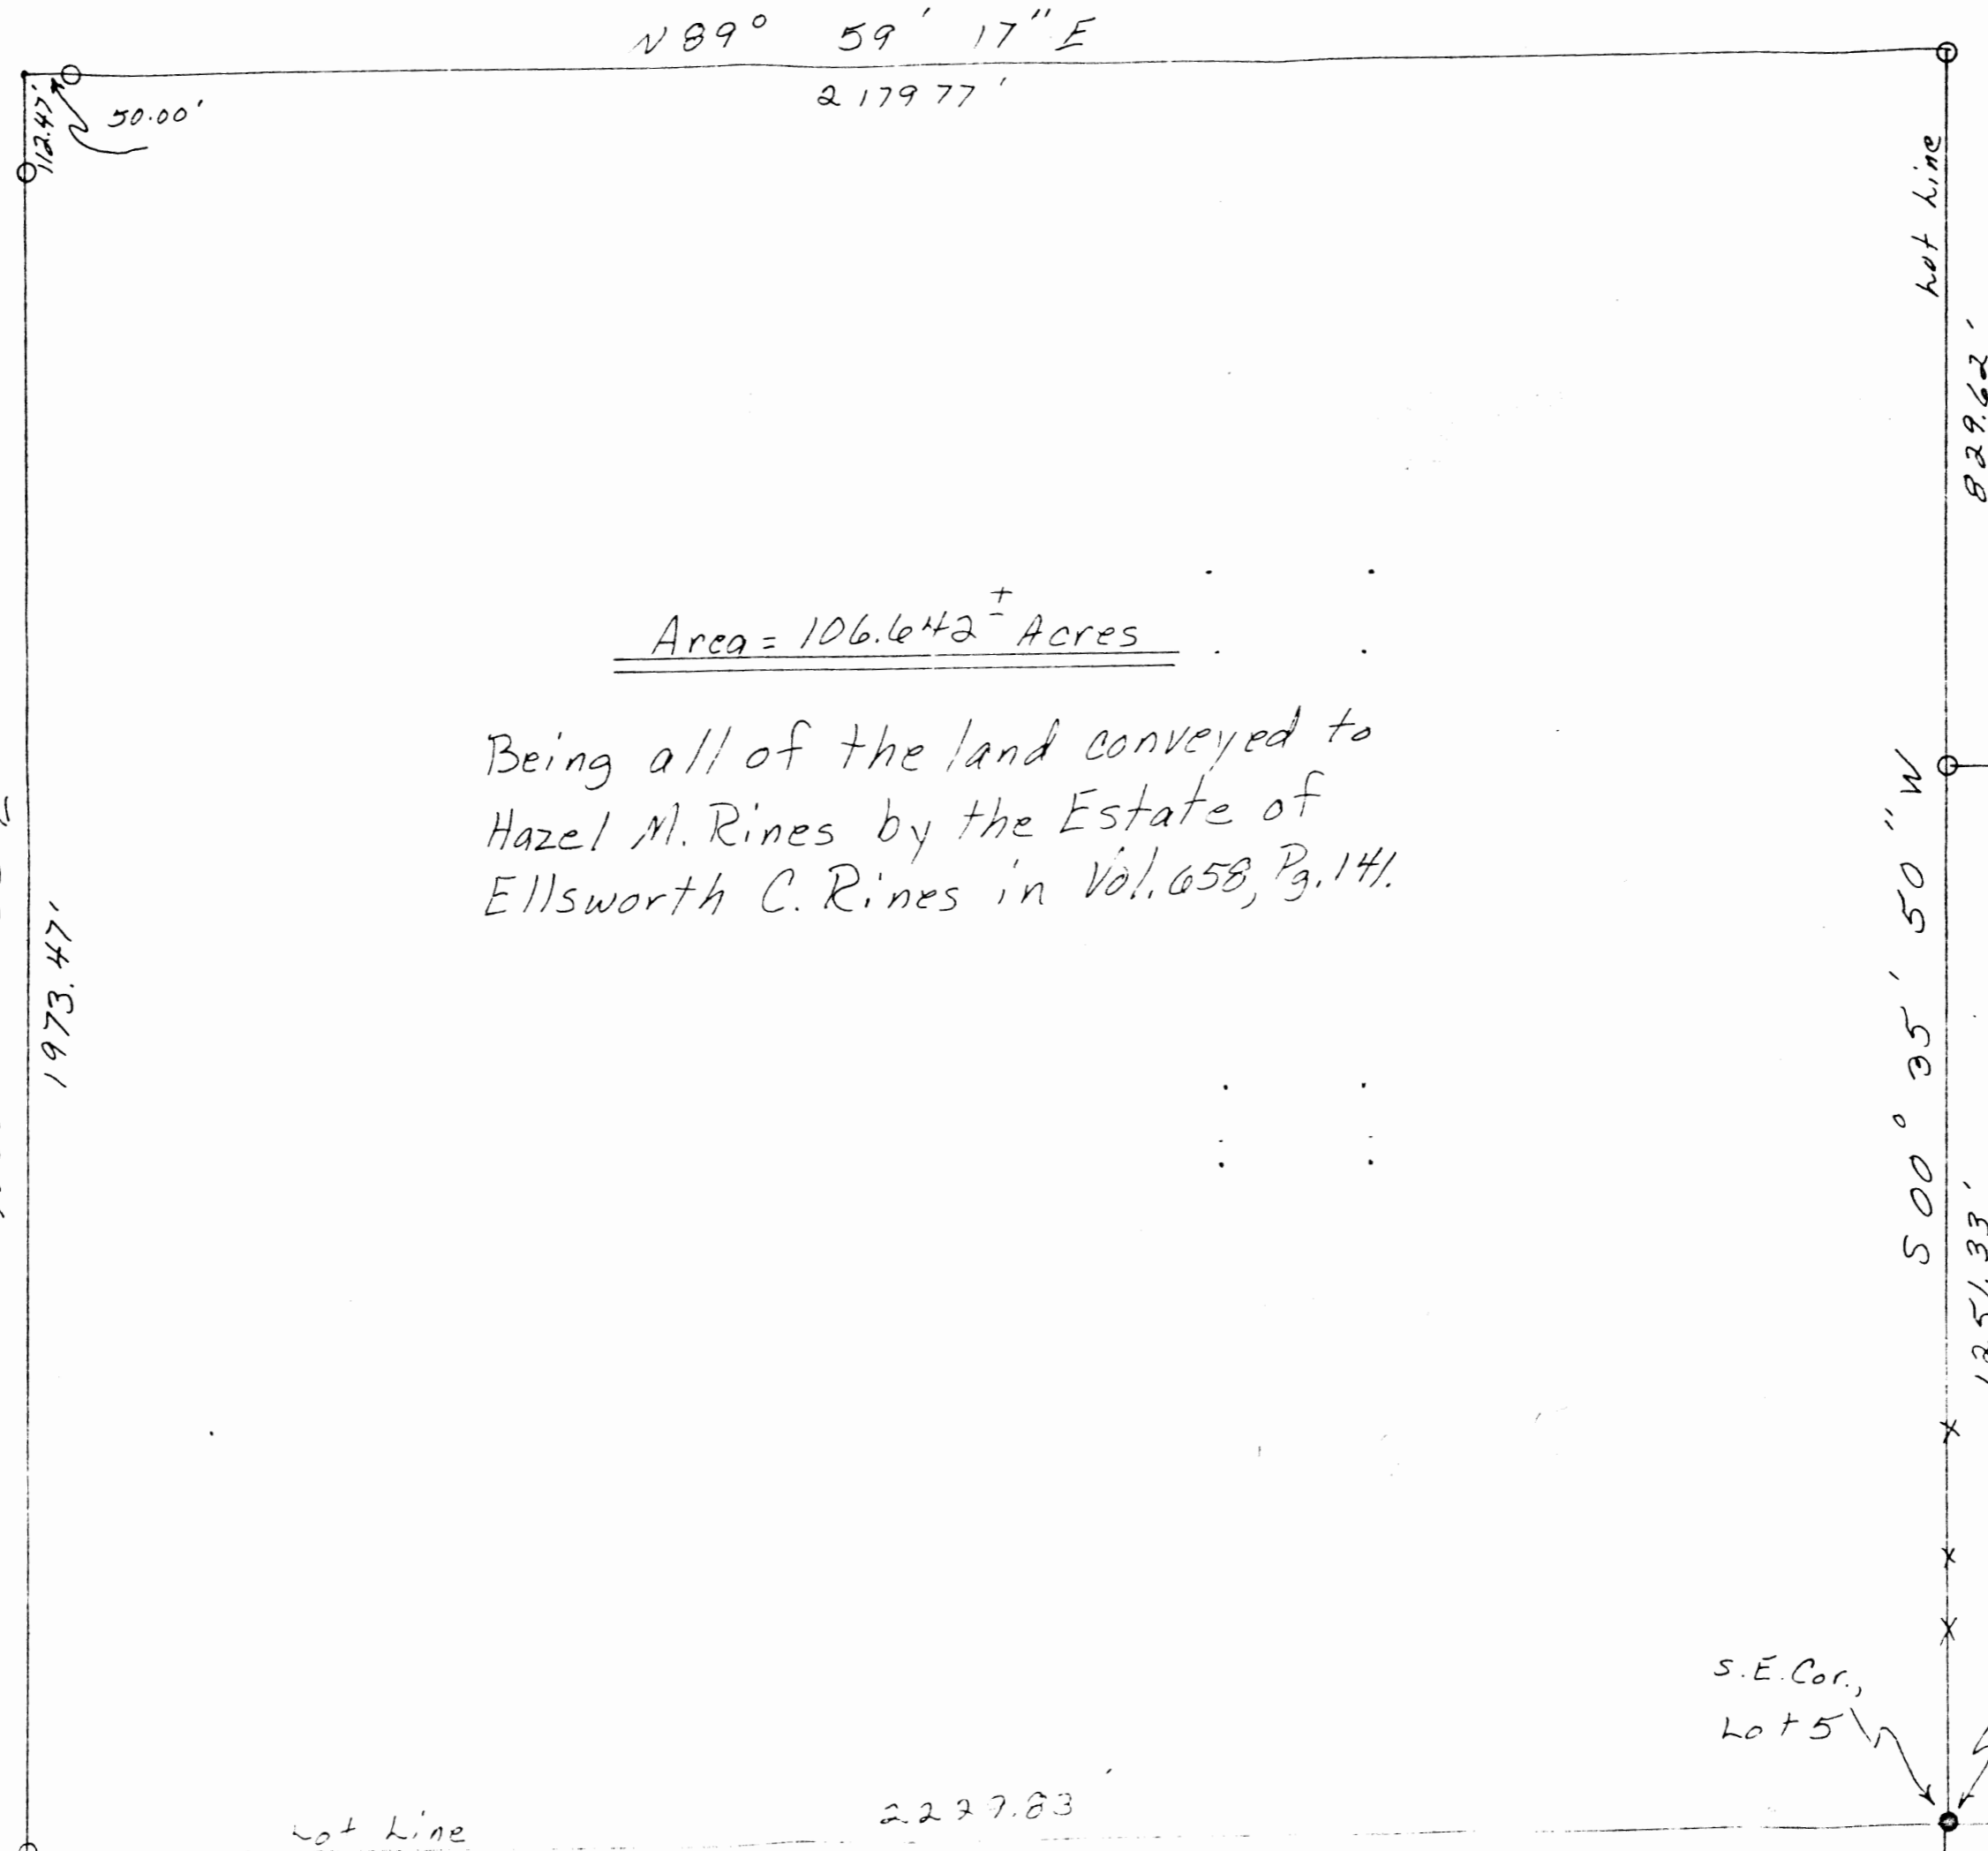 N 89° 59' 17" E
2179 77'
112.47'
50.00'
Lot Line
829.62'
Area = 106.642 ± Acres
Being all of the land conveyed to
Hazel M. Rines by the Estate of
Ellsworth C. Rines in Vol. 658, Pg. 141.
1973.47'
S 00° 35' 50" W
1251.33'
S.E. Cor.,
Lot 5
Lot Line